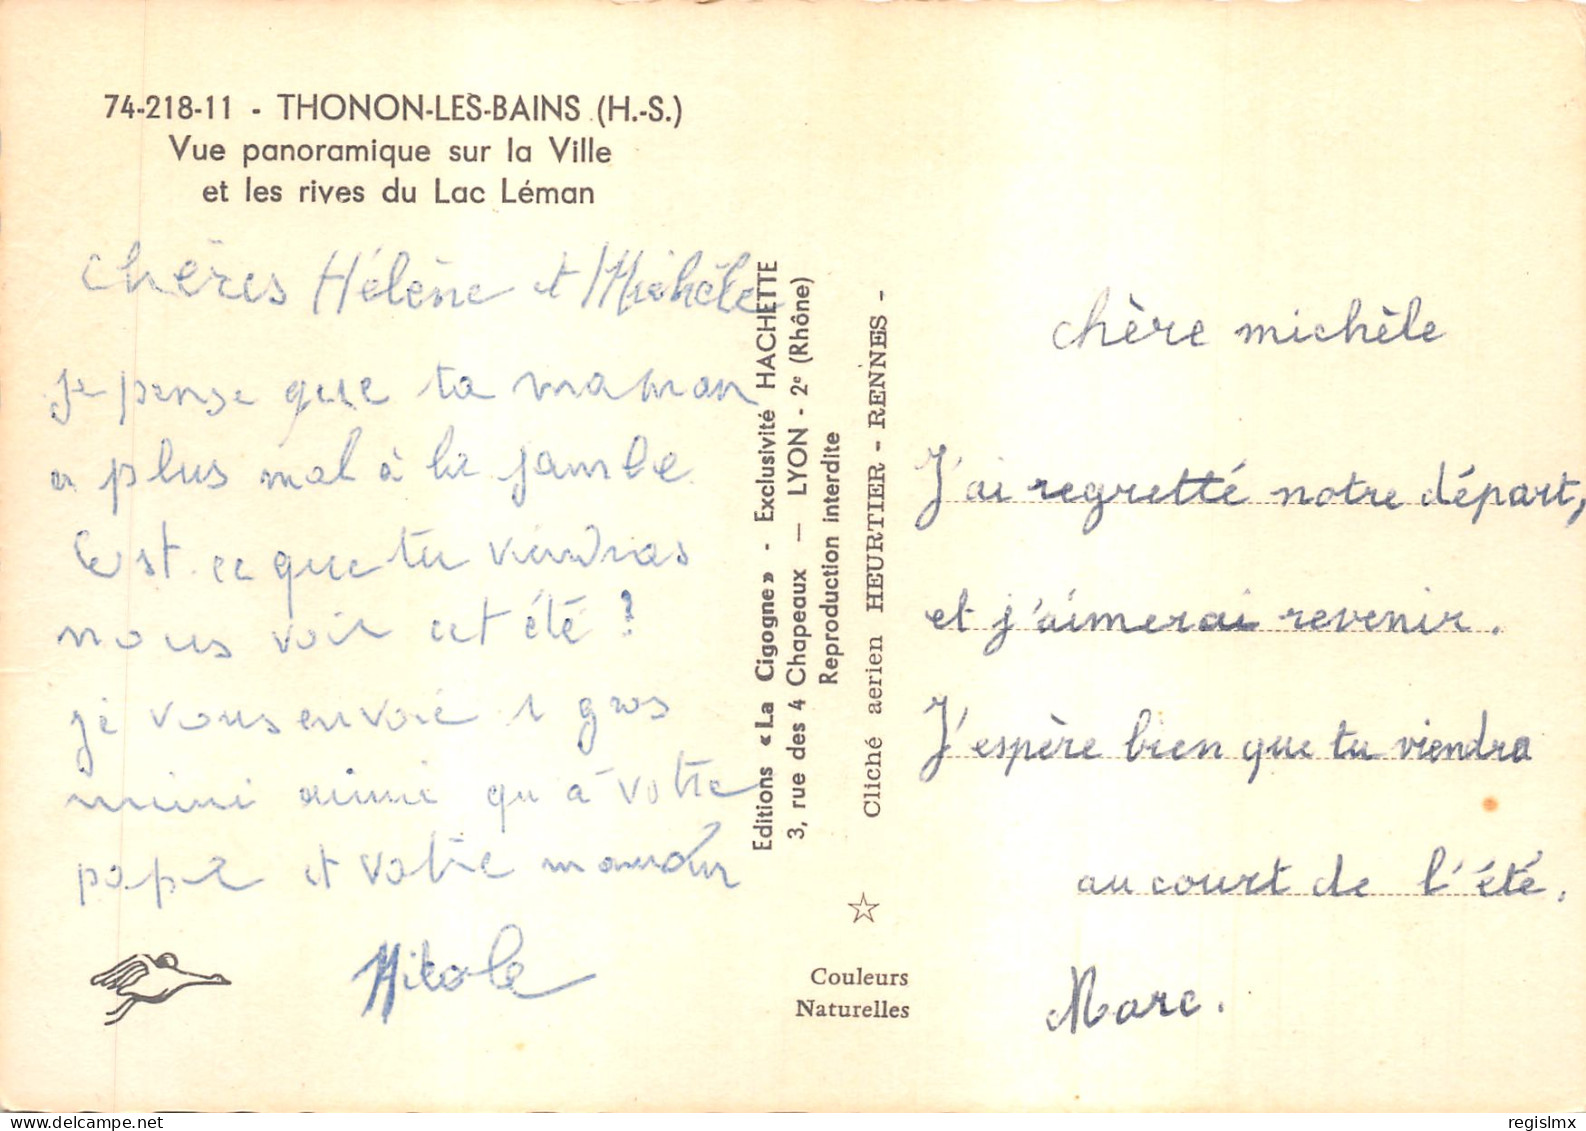 74-218-11 - THONON-LES-BAINS (H.-S.)
Vue panoramique sur la Ville
et les rives du Lac Léman
chères Hélène et Michèle
je pense que ta maman
a plus mal à la jambe
Est ce que tu viendras
nous voir cet été ?
je vous envoie 1 gros
mini qu à votre
papa et votre maman
Nicole
Editions « La Cigogne » - Exclusivité HACHETTE
3, rue des 4 Chapeaux — LYON - 2e (Rhône)
Reproduction interdite
Cliché aerien HEURTIER - RENNES -
Couleurs
Naturelles
chère michèle
J'ai regretté notre départ,
et j'aimerai revenir.
J'espère bien que tu viendra
au court de l'été.
Marc.
delcampe.net
regislmx